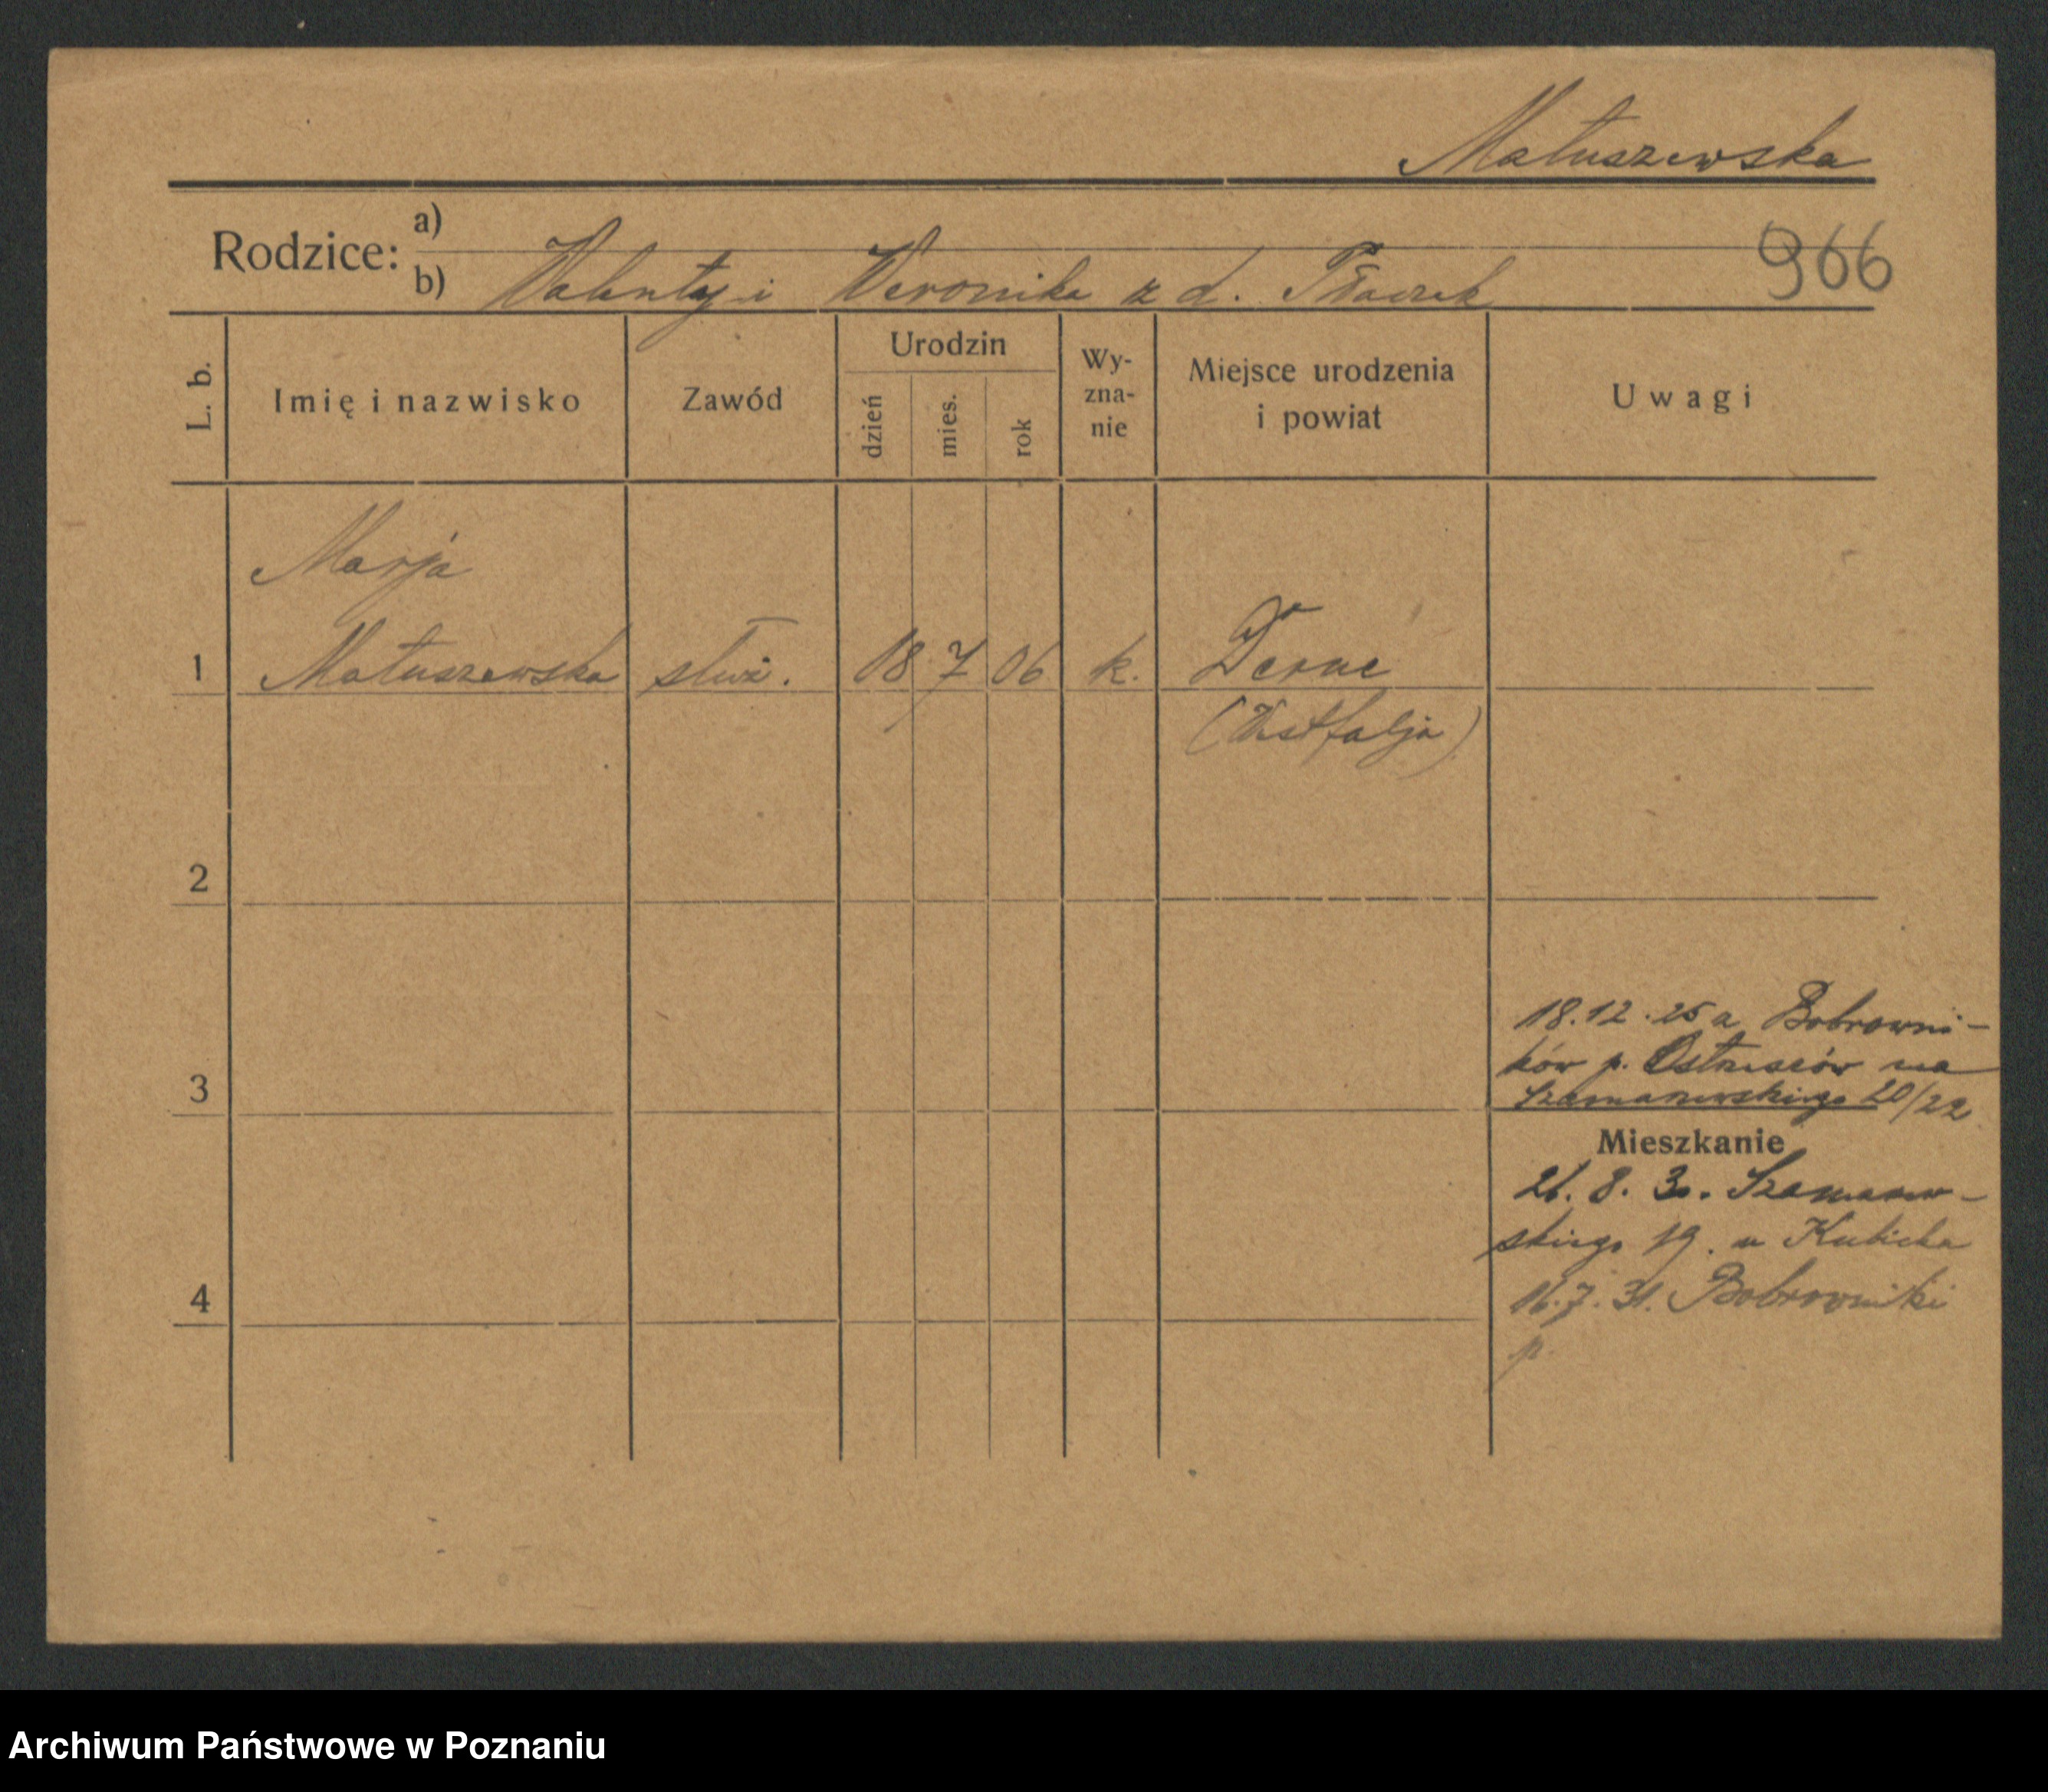 Matuszewska
Rodzice: a)
b) Walenty i Weronika z d. Tłaczek
966
L. b.
Imię i nazwisko
Zawód
Urodzin
dzień
mies.
rok
Wy-
zna-
nie
Miejsce urodzenia
i powiat
Uwagi
Marja
1 Matuszewska służ. 18 7 06 k. Derne
(Westfalja)
2
18.12.25 a Bobrowni-
3 ków p. Ostrzeszów na
Szamarzewskiego 20/22
Mieszkanie
26. 8. 30. Szamarzew-
skiego 19. u Kubicka
4 16.7.31. Bobrowniki
p.
Archiwum Państwowe w Poznaniu